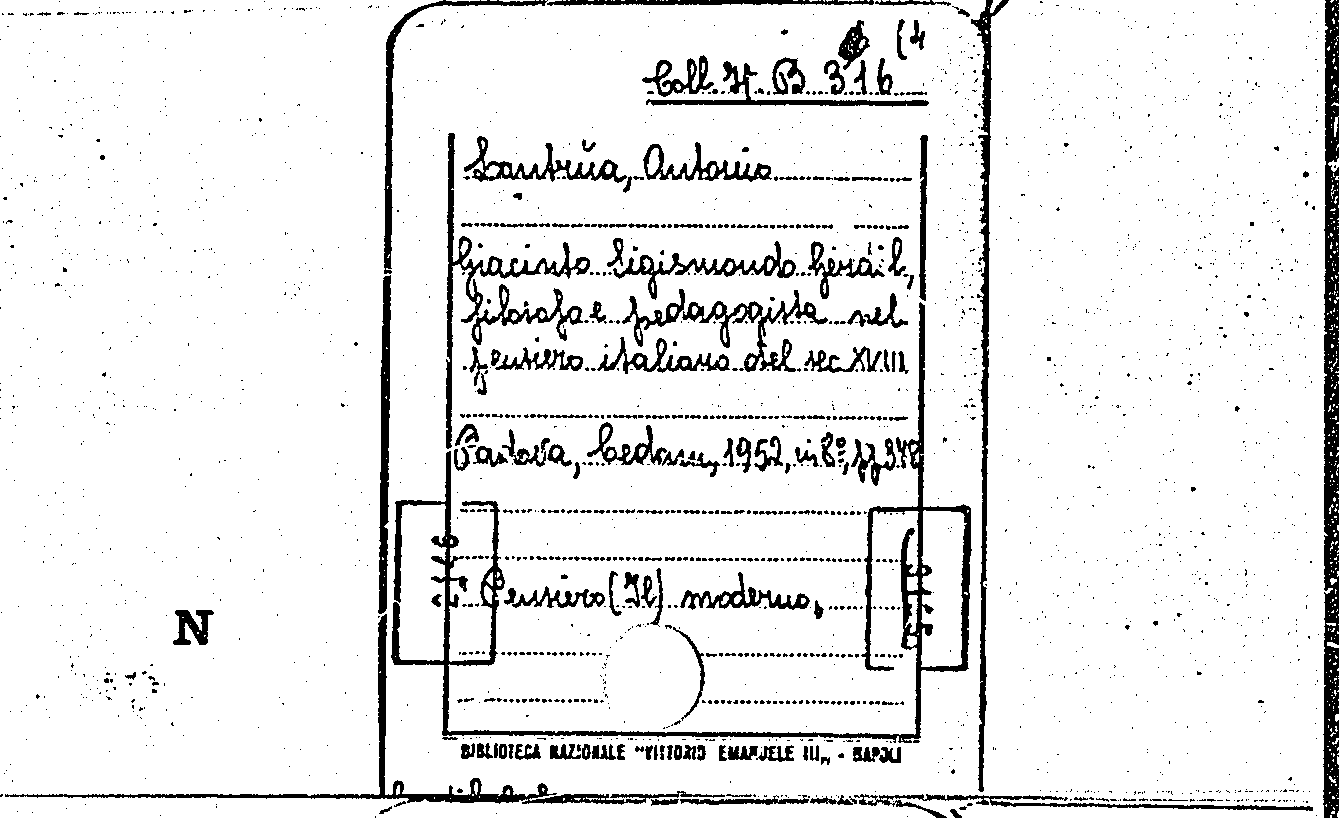 (4
Coll. It. B 316
Lantrŭa, Antonio
Giacinto Sigismondo Gerdil,
filosofo e pedagogista nel
pensiero italiano del sec XVIII
Padova, Cedam, 1952, in 8º, pp 348
Pensiero (Il) moderno,
N
BIBLIOTECA NAZIONALE "VITTORIO EMANUELE III„ - NAPOLI